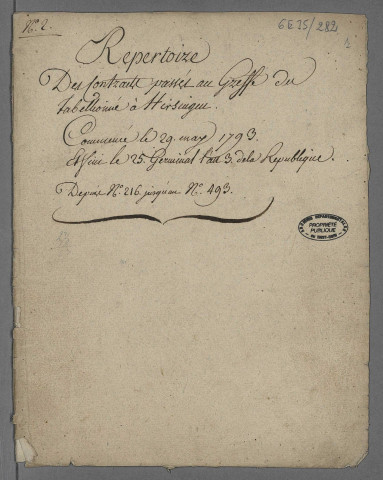 N.º 2.
6E25/282
1
Repertoire
Des contrats passés au Greffe du
tabellioné à Hirsingen.
Commencé le 29. may 1793.
et fini le 25. Germinal l'an 3. de la Republique.
Depuis Nº. 216 jusqu'au Nº. 493.
PROPRIÉTÉ
PUBLIQUE